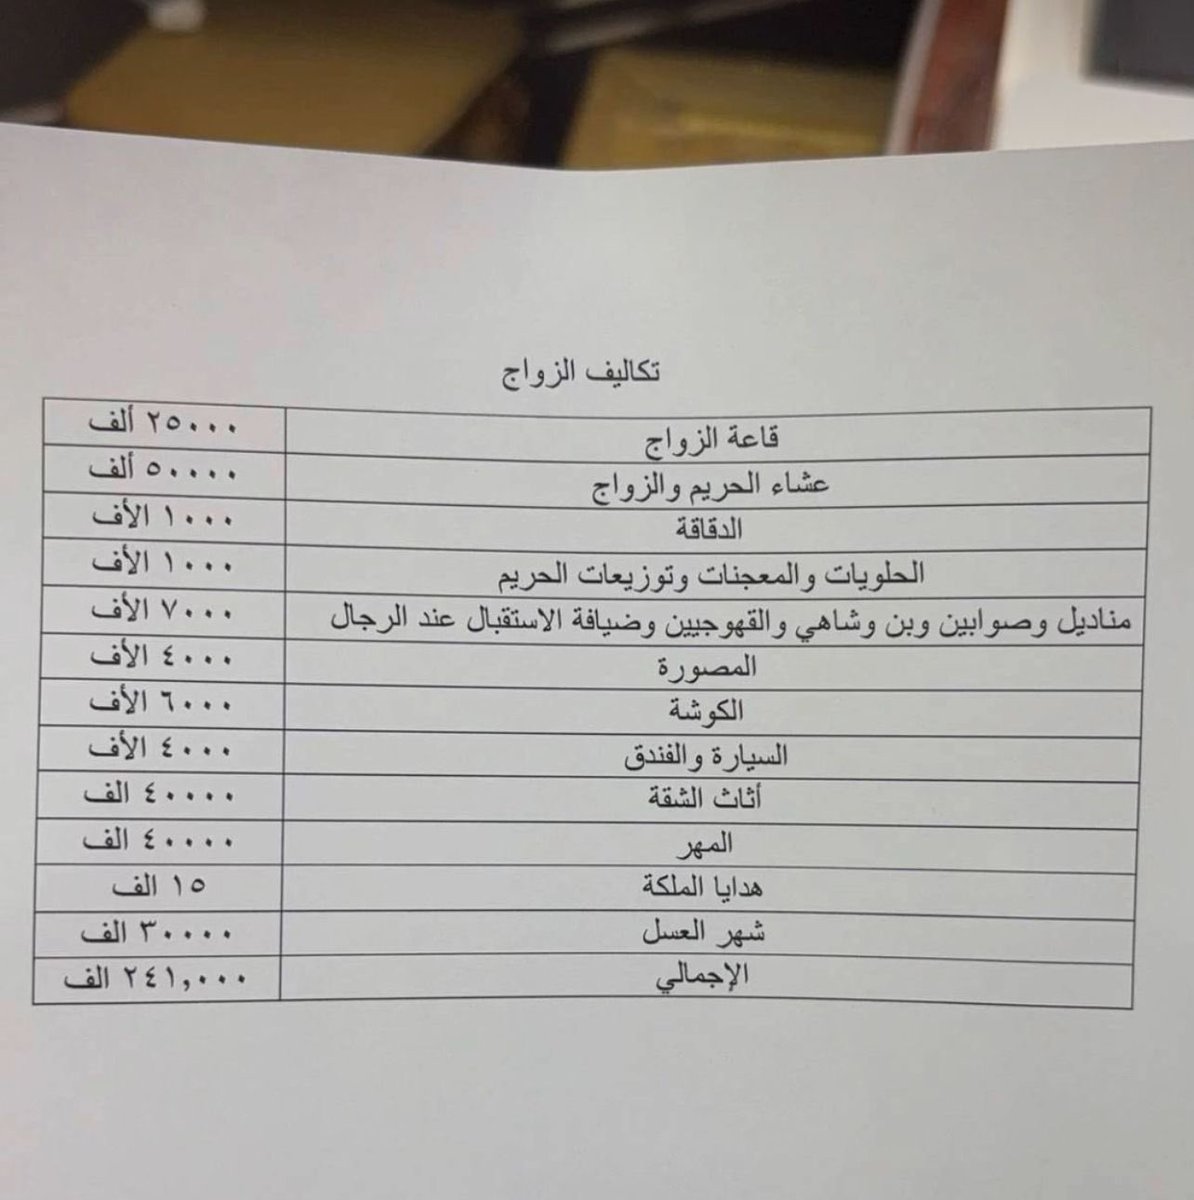 تكاليف الزواج
قاعة الزواج ٢٥٠٠٠ ألف
عشاء الحريم والزواج ٥٠٠٠٠ ألف
الدقاقة ١٠٠٠ الأف
الحلويات والمعجنات وتوزيعات الحريم ١٠٠٠ الأف
مناديل وصوابين وبن وشاهي والقهوجيين وضيافة الاستقبال عند الرجال ٧٠٠٠ الأف
المصورة ٤٠٠٠ الأف
الكوشة ٦٠٠٠ الأف
السيارة والفندق ٤٠٠٠ الأف
أثاث الشقة ٤٠٠٠٠ الف
المهر ٤٠٠٠٠ الف
هدايا الملكة ١٥ الف
شهر العسل ٣٠٠٠٠ الف
الإجمالي ٢٤١,٠٠٠ الف